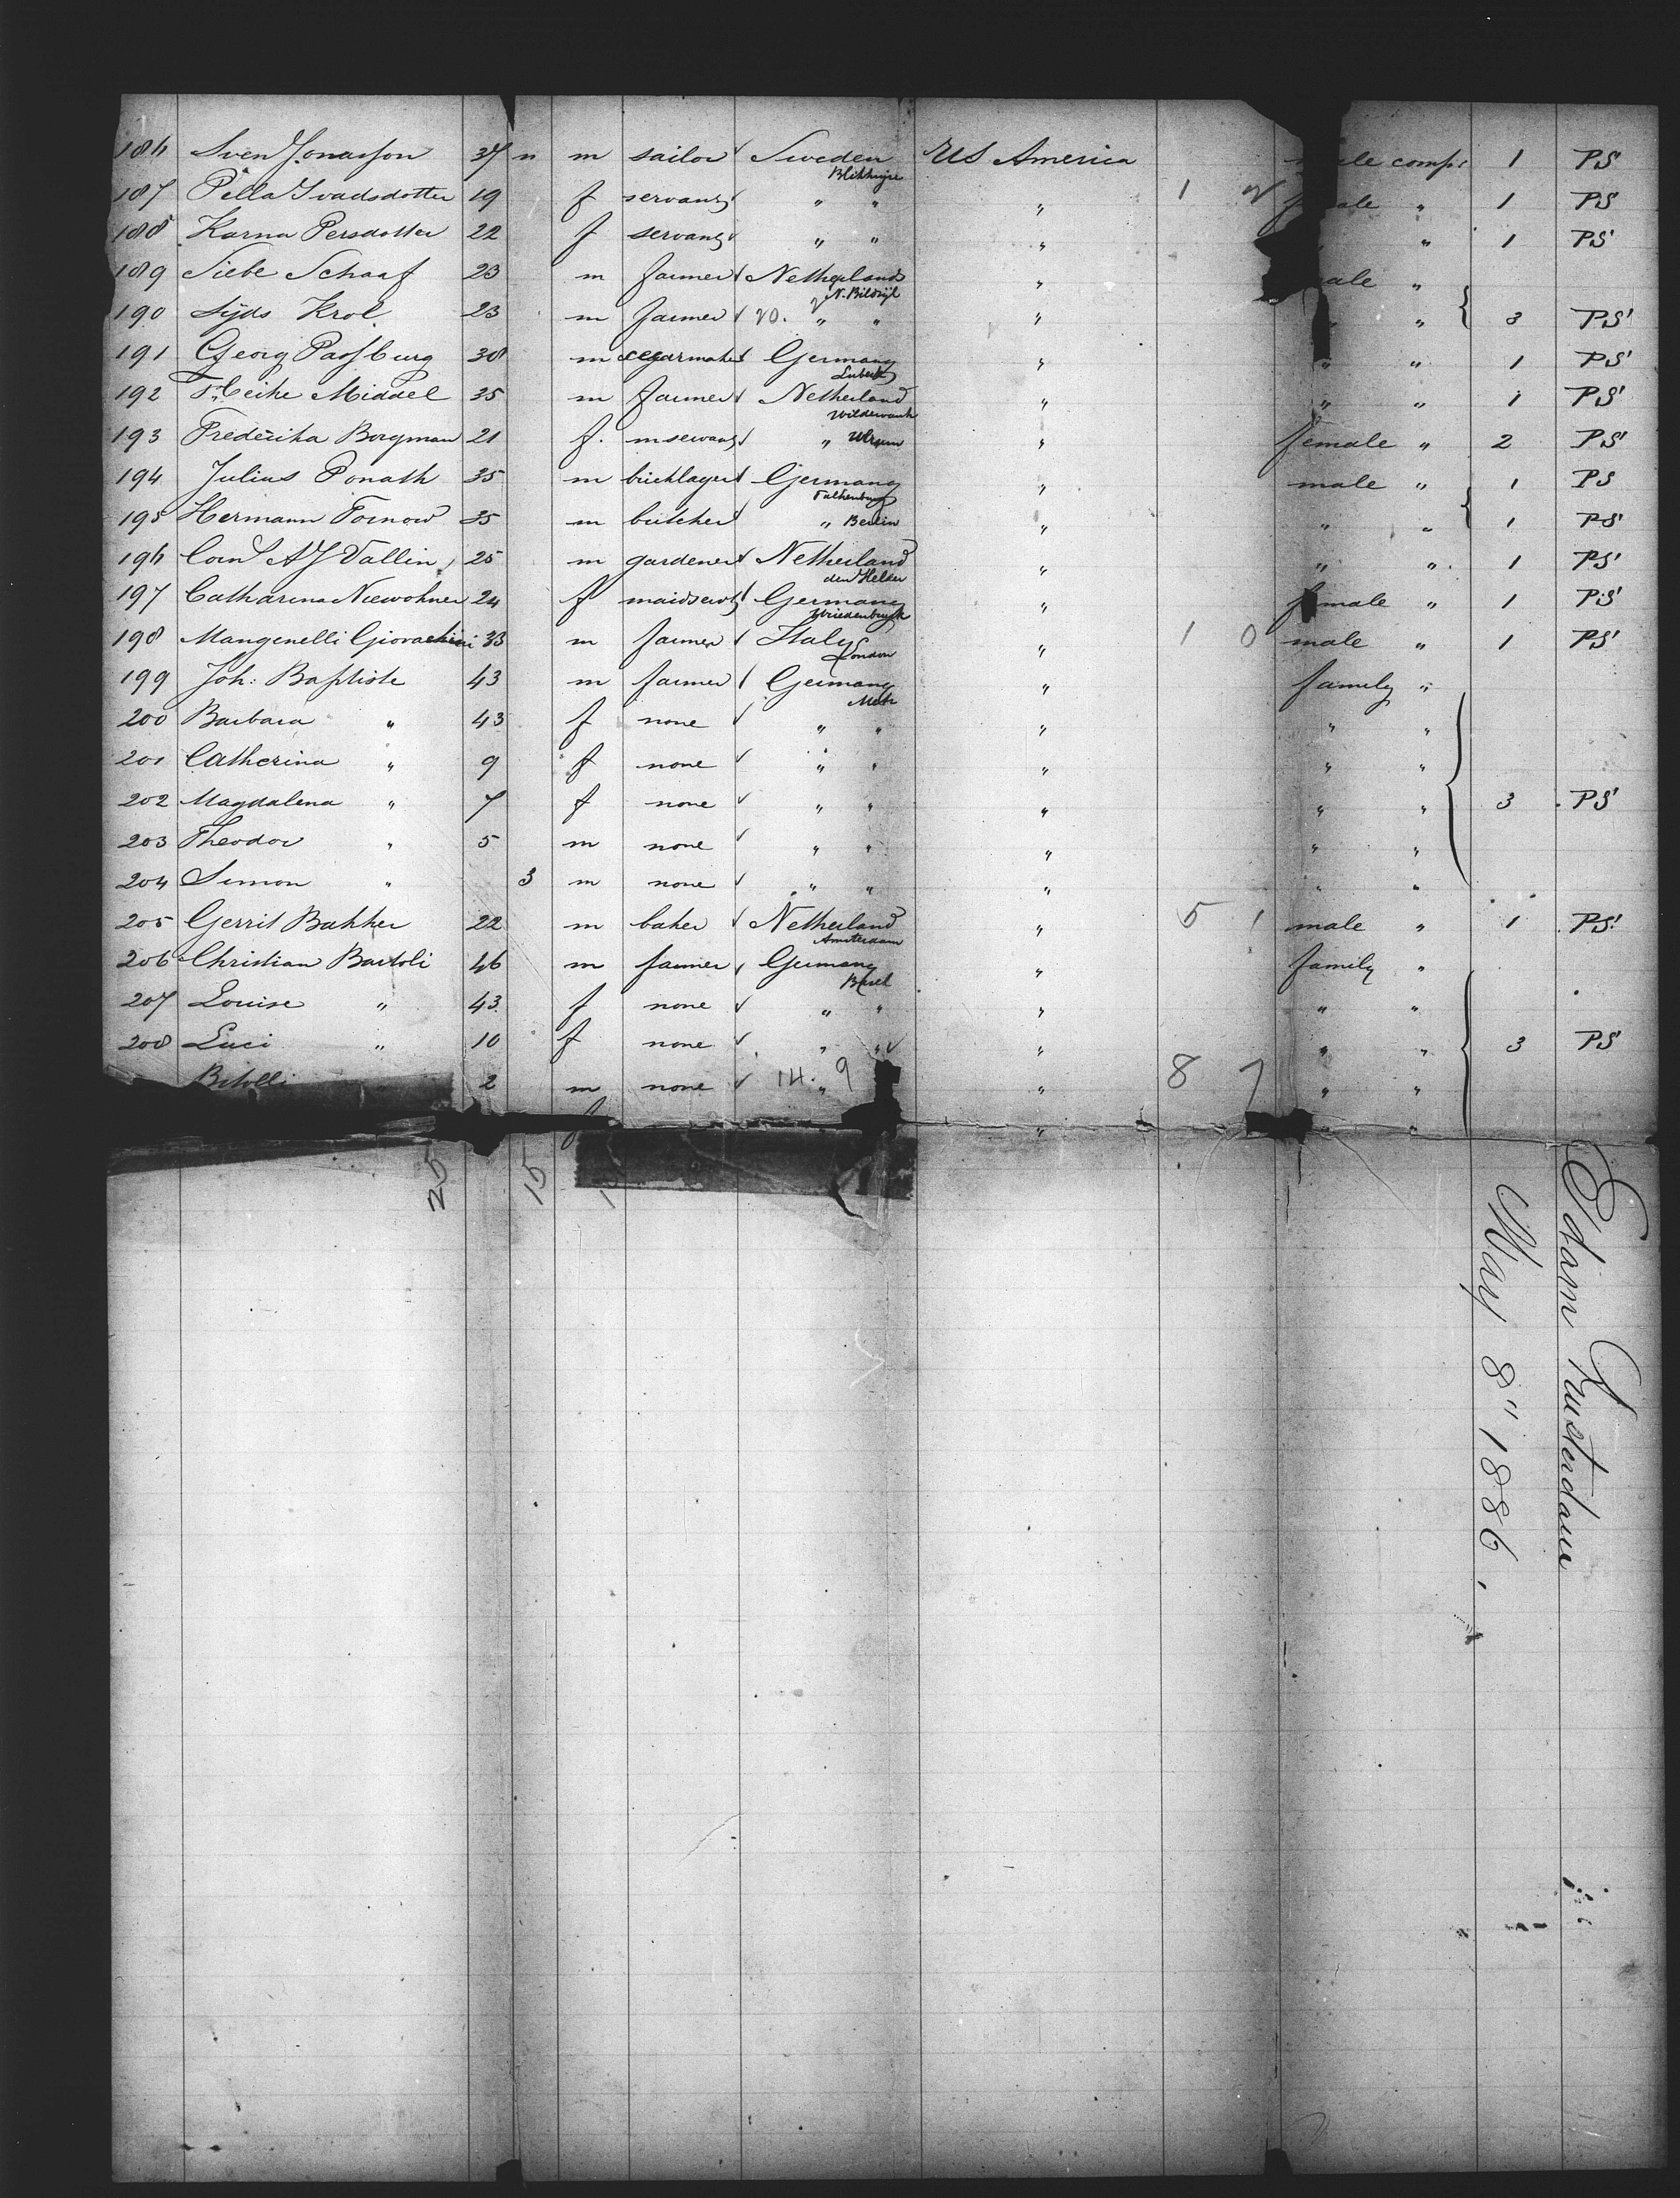 186 Sven Jonasson 37 n m sailor Sweden US America male comp: 1 PS
Blekinge
187 Pella Svadsdotter 19 f servant " " " 1 2 female " 1 PS
188 Karna Persdotter 22 f servant " " " " 1 PS
189 Siebe Schaaf 23 m farmer Netherlands " male "
N. Bildzijl
190 Sÿds Krol 23 m farmer 20. " " " " " 3 PS
191 Georg Passburg 30 m cegarmaker Germany " " " 1 PS
Lubeck
192 Fr. Ceike Middel 35 m farmer Netherland " " " 1 PS
Wildervank
193 Frederika Borgman 21 f. m servant " Ulrum " female " 2 PS
194 Julius Ponath 35 m bricklayer Germany " male " 1 PS
Falkenburg
195 Hermann Tornow 35 m butcher " Berlin " " " 1 PS
196 Corn S A J Vallin 25 m gardener Netherland " " " 1 PS
den Helder
197 Catharina Niewohner 24 f maidservt Germany " female " 1 PS
198 Mangenelli Giovachini 33 m farmer Italy " 1 0 male " 1 PS
London
199 Joh: Baptiste 43 m farmer Germany " family "
Metz
200 Barbara " 43 f none " " " " "
201 Catherina " 9 f none " " " " "
202 Magdalena " 7 f none " " " " " 3 PS
203 Theodor " 5 m none " " " " "
204 Simon " 3 m none " " " " "
205 Gerrit Bakker 22 m baker Netherland " 5 1 male " 1 PS
Amsterdam
206 Christian Bartoli 46 m farmer Germany " family "
Basel
207 Louise " 43 f none " " " " "
208 Luci " 10 f none " " " " " 3 PS
2 m none 14. " 9 " 8 7 " "
f " " "
25 15
Edam Amsterdam
May 8" 1886.